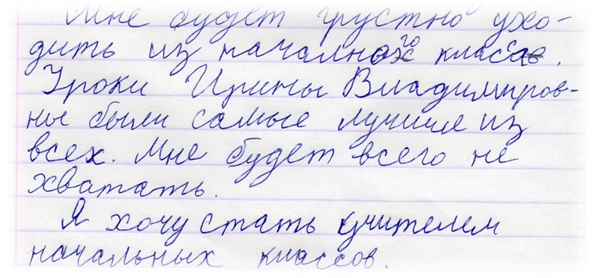 Мне будет грустно ухо-
дить из началного класса.
Уроки Ирины Владимиров-
ны были самые лучшие из
всех. Мне будет всего не
хватать.
Я хочу стать учителем
начальных классов.